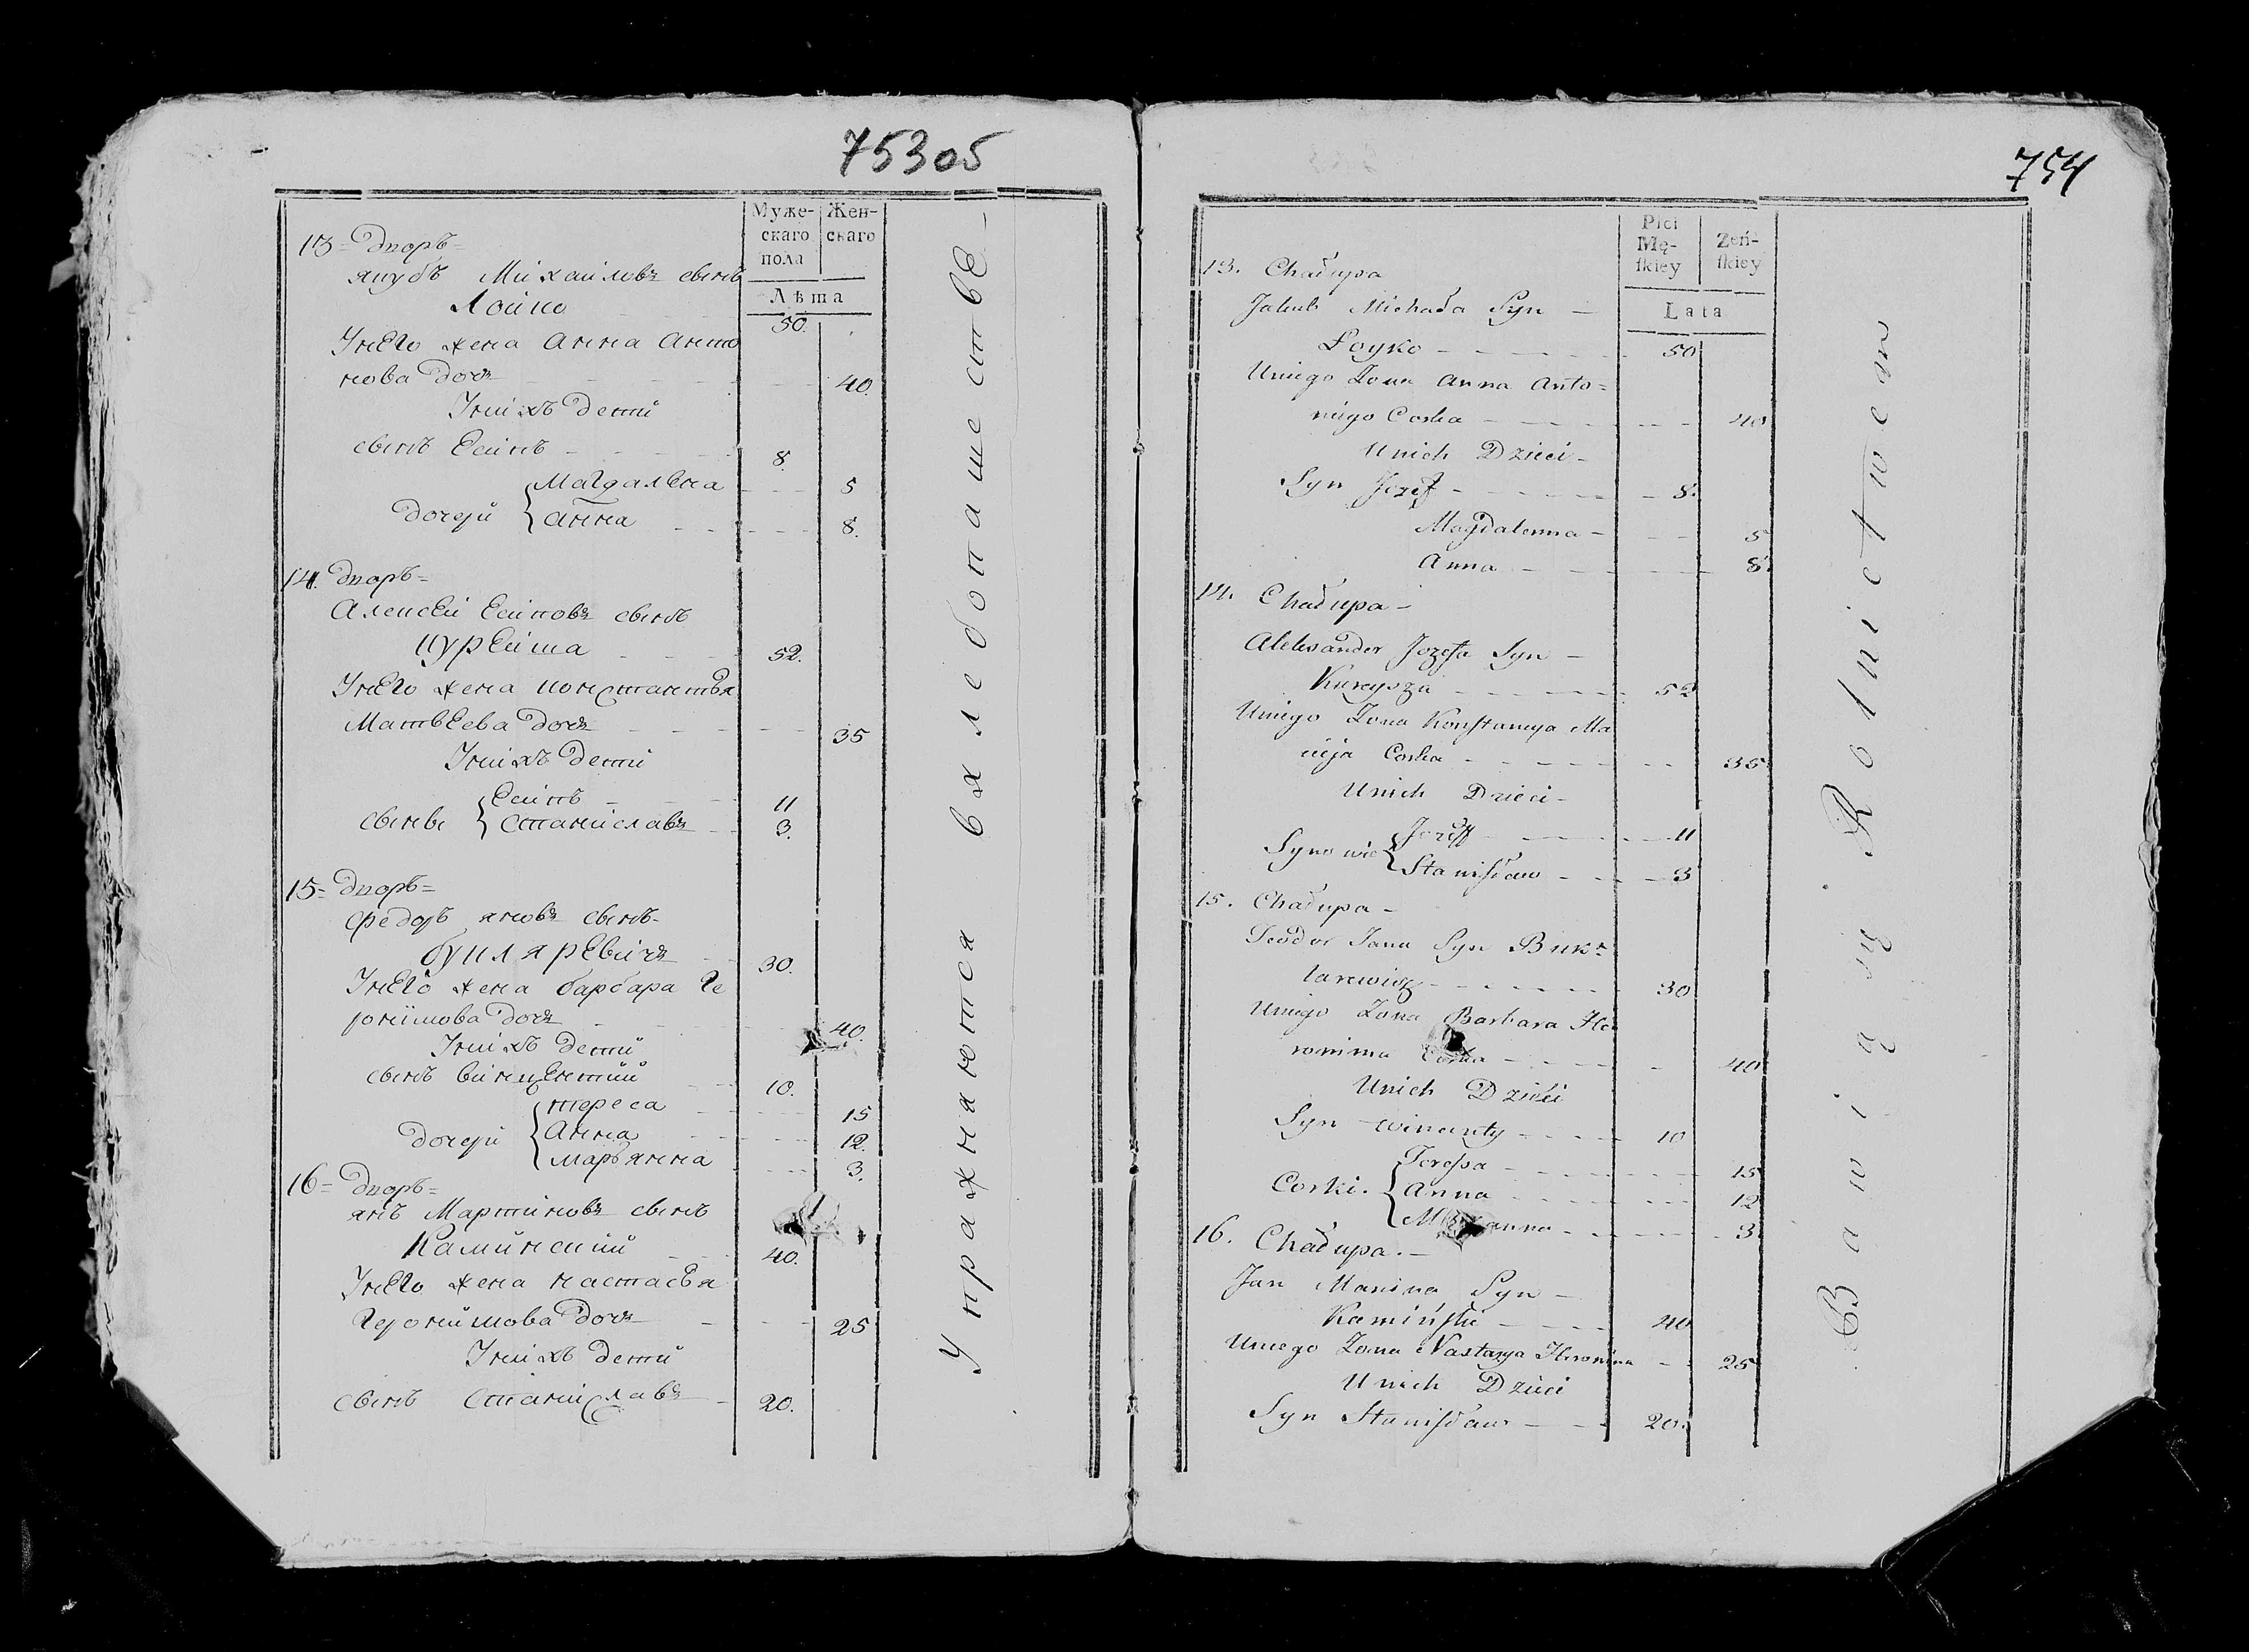 753об
Муже-
скаго
пола
Жен-
скаго
Лѣта
13= дворъ=
якубъ Михаиловъ сынъ
Лойко 50.
У него жена Анна Анто
нова дочь 40.
У них детй
сынъ Есипъ 8.
Дочерй Магдалена 5
анна 8.
14. дворъ=
Алексей Есиповъ сынъ
курейша 52.
У него жена константыя
Матвеева дочь 35
У нихъ детй
сыны Есипъ 11
Станиславъ 3.
15= дворъ=
Федоръ яновъ сынъ
букляревичъ 30.
У него жена барбара Ге
ронимова дочь 40.
У нихъ детй
сынъ винцентий 10.
Дочерй тереса 15
Анна 12.
Марьянна 3.
16= дворъ=
янъ Мартиновъ сынъ
Каминский 40.
У него жена настасья
Геронимова дочь 25
У нихъ детй
сынъ Станиславъ 20.
Упражняются в хлебопашестве
754
Płci
Mę-
skiey
Żeń-
skiey
Lata
13. Chałupa
Jakub Michała Syn
Łoyko 50
U niego Żona Anna Anto=
niego Corka 40
U nich Dzieci
Syn Jozef 8.
Magdalenna 5
Anna 8.
14. Chałupa
Aleksander Jozefa Syn
Kureysza 52
U niego Żona Konstancya Ma
cieja Corka 35
U nich Dzieci
Synowie Jozeff 11
Stanisław 3
15. Chałupa
Teodor Jana Syn Buk=
larewicz 30
U niego Żona Barbara He
ronima Corka 40
U nich Dzieci
Syn Wincenty 10
Corki. Teressa 15
Anna 12
3
16. Chałupa.
Jan Marcina Syn
Kamiński 40
U niego Żona Nastazya Heronima 25
U nich Dzieci
Syn Stanisław 20.
Bawią się Rolnictwem